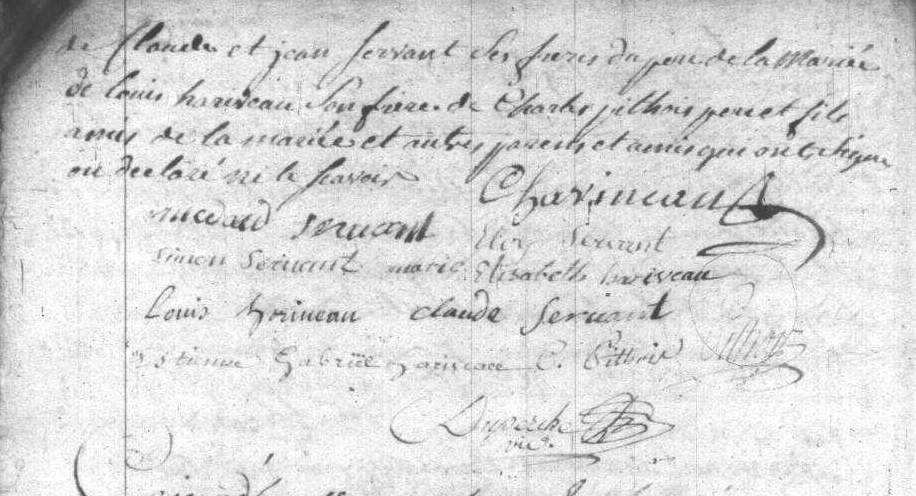 de Claude et jean servant ses freres du pere de la Mariée
de louis hariveau son frere de Charles pithois pere et fils
amis de la mariée et autres parens et amis qui ont signé
ou declaré ne le scavoir
C hariveau
medard servant Eloy servant
simon servant marie Elisabeth hariveau
Louis horiveau claude servant
Estienne Gabriël hariveau C. Pithois Pithois
Duperche
vic.